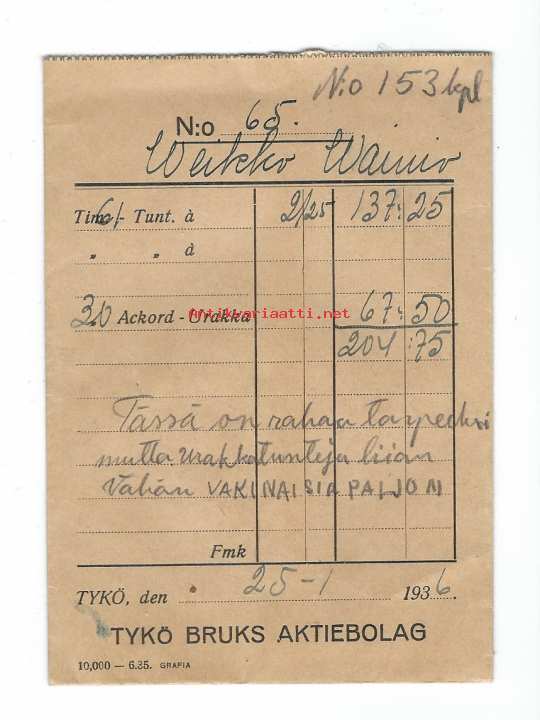 N:o 153 kpl
N:o 65.
Weikko Wainio
Tim. 61 - Tunt. à 2/25 137:25
" " à
30 Ackord - Urakka 67:50
antikvariaatti.net
204:75
Tässä on rahaa tarpeeksi
mutta urakkatunteja liian
Vähän VAKINAISIA PALJON
Fmk
TYKÖ, den 25-1 1936.
TYKÖ BRUKS AKTIEBOLAG
10,000 — 6.35. GRAFIA